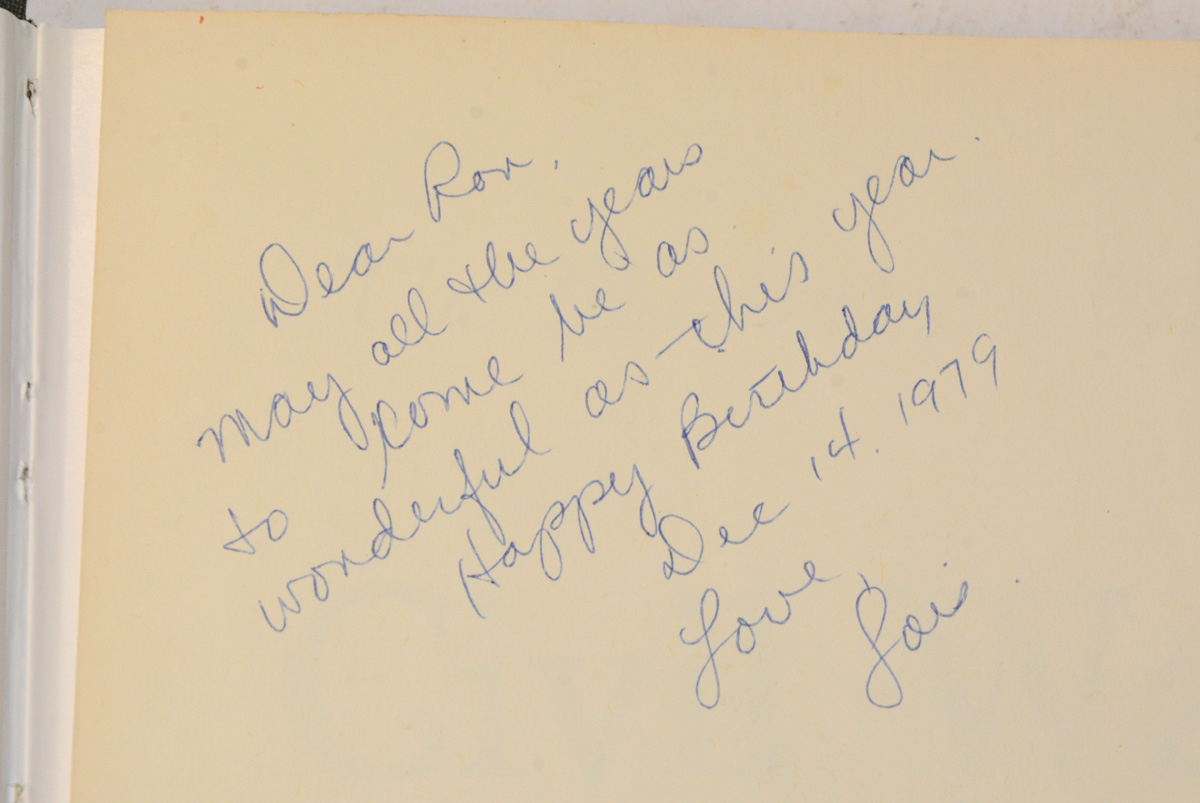 Dear Ron,
May all the years
to come be as
wonderful as this year.
Happy Birthday
Dec 14. 1979
Love,
Lois.